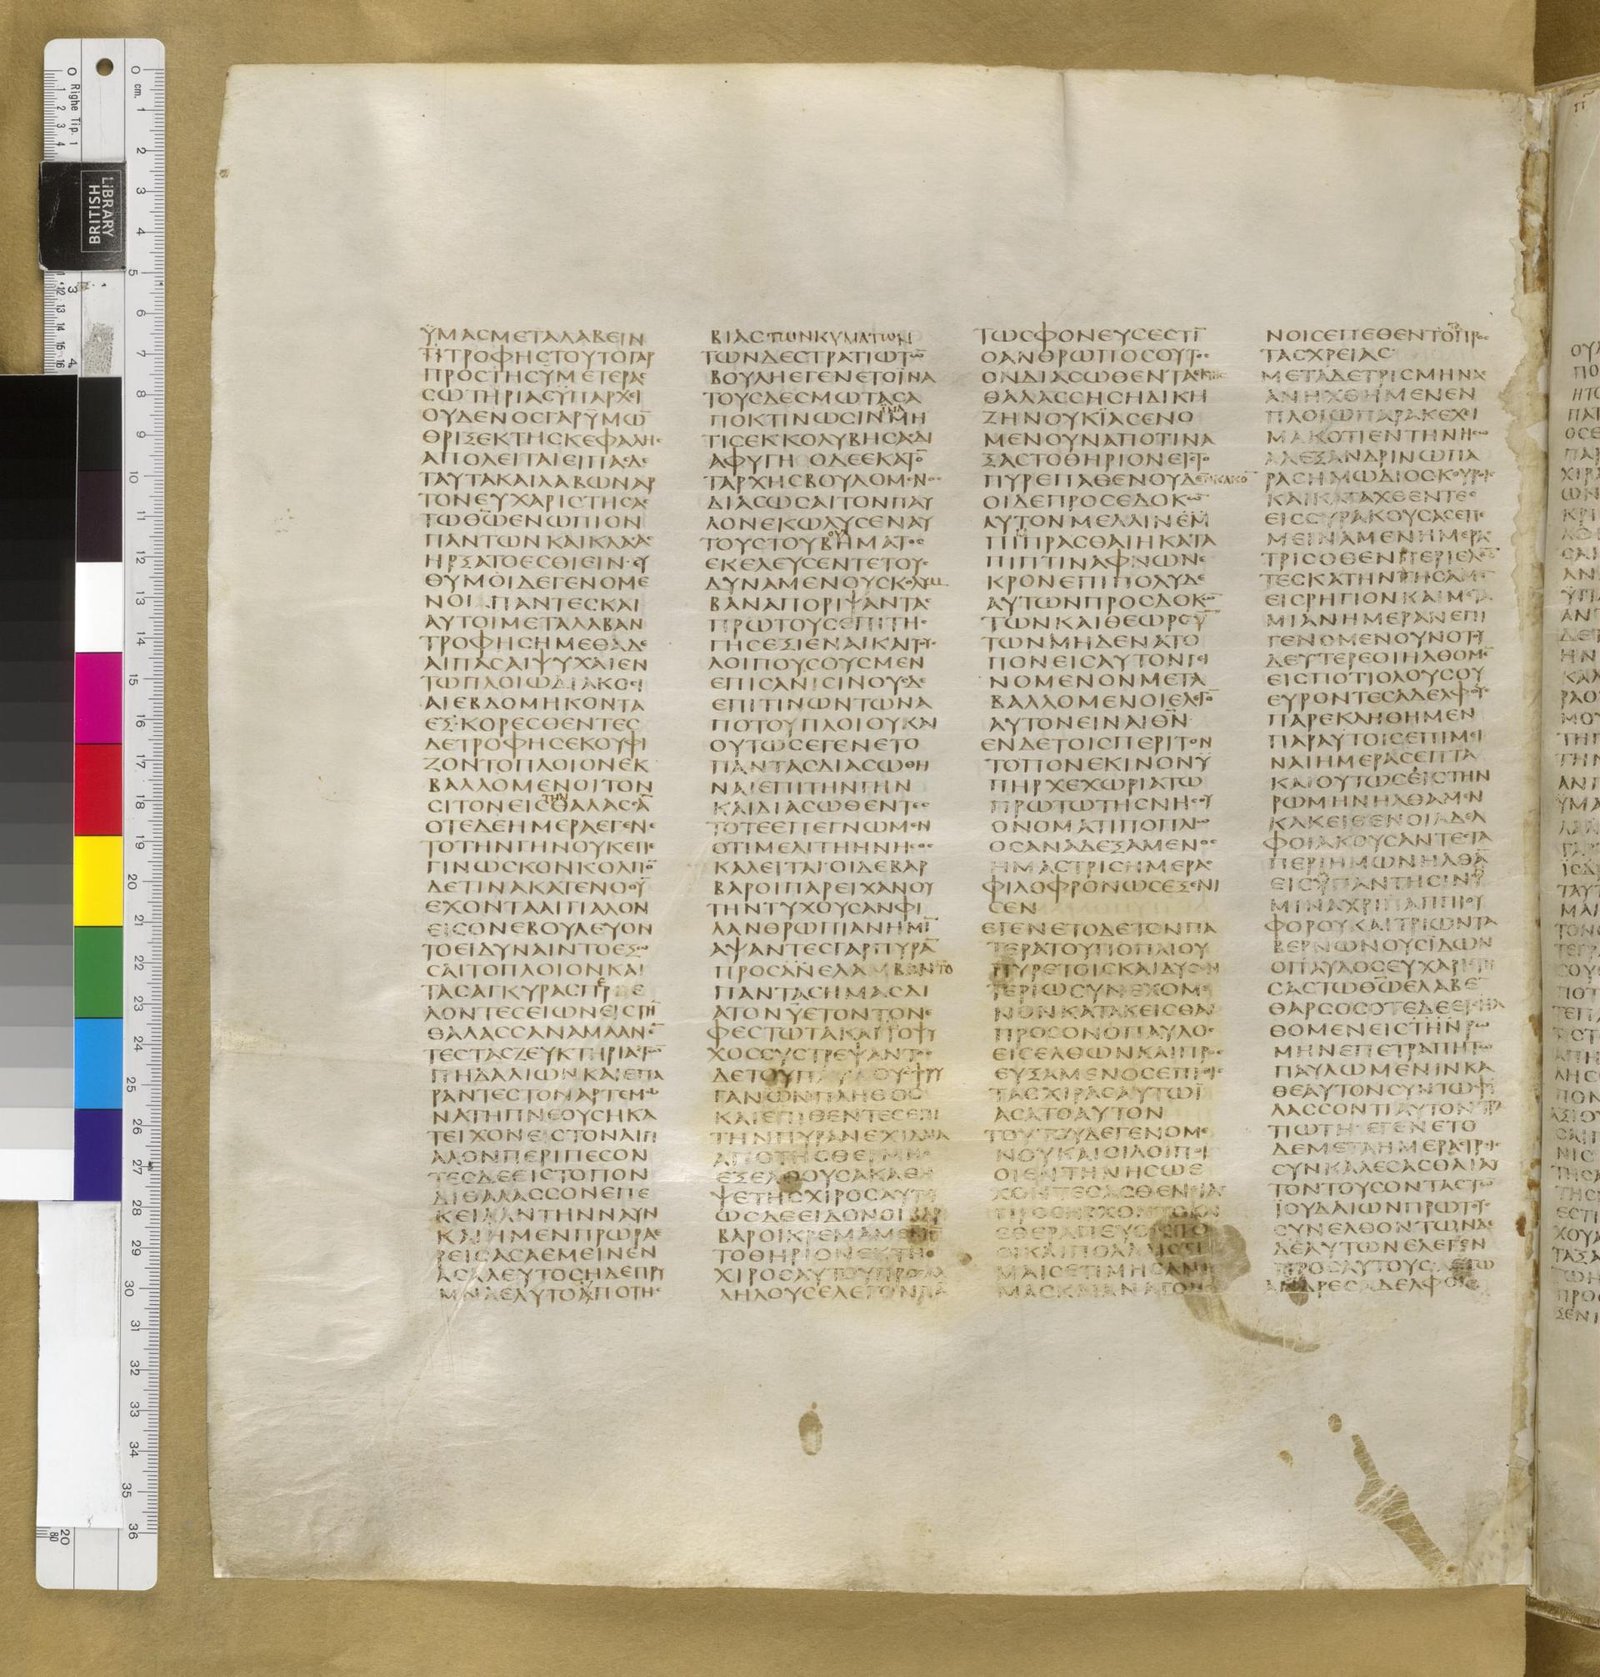 ΫΜΑϹΜΕΤΑΛΑΒΕΙΝ
ΤΙΤΡΟΦΗϹΤΟΥΤΟΓΑΡ
ΠΡΟϹΤΗϹΫΜΕΤΕΡΑϹ
ϹΩΤΗΡΙΑϹΫΠΑΡΧΕΙ
ΟΥΔΕΝΟϹΓΑΡΫΜΩ̅
ΘΡΙΞΕΚΤΗϹΚΕΦΑΛΗϹ
ΑΠΟΛΕΙΤΑΙΕΙΠΑϹΔΕ
ΤΑΥΤΑΚΑΙΛΑΒΩΝΑΡ
ΤΟΝΕΥΧΑΡΙϹΤΗϹΑϹ
ΤΩΘ̅Ω̅ΕΝΩΠΙΟΝ
ΠΑΝΤΩΝΚΑΙΚΛΑϹΑϹ
ΗΡΞΑΤΟΕϹΘΙΕΙΝΕΥ
ΘΥΜΟΙΔΕΓΕΝΟΜΕ
ΝΟΙΠΑΝΤΕϹΚΑΙ
ΑΥΤΟΙΜΕΤΑΛΑΒΑΝ
ΤΡΟΦΗϹΗΜΕΘΑΔΕ
ΑΙΠΑϹΑΙΨΥΧΑΙΕΝ
ΤΩΠΛΟΙΩΔΙΑΚΟϹΙ
ΑΙΕΒΔΟΜΗΚΟΝΤΑ
ΕΞΚΟΡΕϹΘΕΝΤΕϹ
ΔΕΤΡΟΦΗϹΕΚΟΥΦΙ
ΖΟΝΤΟΠΛΟΙΟΝΕΚ
ΒΑΛΛΟΜΕΝΟΙΤΟΝ
ϹΙΤΟΝΕΙϹΤΗΝΘΑΛΑϹϹΑ̅
ΟΤΕΔΕΗΜΕΡΑΕΓΕΝΕ
ΤΟΤΗΝΓΗΝΟΥΚΕΠΕ
ΓΙΝΩϹΚΟΝΚΟΛΠΟ̅
ΔΕΤΙΝΑΚΑΤΕΝΟΟΥ̅
ΕΧΟΝΤΑΑΙΓΙΑΛΟΝ
ΕΙϹΟΝΕΒΟΥΛΕΥΟΝ
ΤΟΕΙΔΥΝΑΙΝΤΟΕΞΩ
ϹΑΙΤΟΠΛΟΙΟΝΚΑΙ
ΤΑϹΑΓΚΥΡΑϹΠΕΡΙΕ
ΛΟΝΤΕϹΕΙΩΝΕΙϹΤΗ̅
ΘΑΛΑϹϹΑΝΑΜΑΑΝΕ̅
ΤΕϹΤΑϹΖΕΥΚΤΗΡΙΑϹΤΩ̅
ΠΗΔΑΛΙΩΝΚΑΙΕΠΑ
ΡΑΝΤΕϹΤΟΝΑΡΤΕΜΩ
ΝΑΤΗΠΝΕΟΥϹΗΚΑ
ΤΕΙΧΟΝΕΙϹΤΟΝΑΙΓΙ
ΑΛΟΝΠΕΡΙΠΕϹΟΝ
ΤΕϹΔΕΕΙϹΤΟΠΟΝ
ΔΙΘΑΛΑϹϹΟΝΕΠΕ
ΚΕΙΛΑΝΤΗΝΝΑΥΝ
ΚΑΙΗΜΕΝΠΡΩΡΑΕ
ΡΕΙϹΑϹΑΕΜΕΙΝΕΝ
ΑϹΑΛΕΥΤΟϹΗΔΕΠΡΥ
ΜΝΑΕΛΥΤΟΑΠΟΤΗϹ
ΒΙΑϹΤΩΝΚΥΜΑΤΩΝ
ΤΩΝΔΕϹΤΡΑΤΙΩΤΩ̅
ΒΟΥΛΗΕΓΕΝΕΤΟΪΝΑ
ΤΟΥϹΔΕϹΜΩΤΑϹΑ
ΠΟΚΤΙΝΩϹΙΝΜΗ
ΤΙϹΕΚΚΟΛΥΒΗϹΑΔΙ
ΑΦΥΓΗΟΔΕΕΚΑΤΟ̅
ΤΑΡΧΗϹΒΟΥΛΟΜΕΝΟϹ
ΔΙΑϹΩϹΑΙΤΟΝΠΑΥ
ΛΟΝΕΚΩΛΥϹΕΝΑΥ
ΤΟΥϹΤΟΥΒΗΜΑΤΟϹ
ΕΚΕΛΕΥϹΕΝΤΕΤΟΥϹ
ΔΥΝΑΜΕΝΟΥϹΚΟΛΥΜ
ΒΑΝΑΠΟΡΙΨΑΝΤΑϹ
ΠΡΩΤΟΥϹΕΠΙΤΗϹ
ΓΗϹΕΞΙΕΝΑΙΚΑΙΤΟΥϹ
ΛΟΙΠΟΥϹΟΥϹΜΕΝ
ΕΠΙϹΑΝΙϹΙΝΟΥϹΔΕ
ΕΠΙΤΙΝΩΝΤΩΝΑ
ΠΟΤΟΥΠΛΟΙΟΥΚΑΙ
ΟΥΤΩϹΕΓΕΝΕΤΟ
ΠΑΝΤΑϹΔΙΑϹΩΘΗ
ΝΑΙΕΠΙΤΗΝΓΗΝ
ΚΑΙΔΙΑϹΩΘΕΝΤΕϹ
ΤΟΤΕΕΠΕΓΝΩΜΕΝ
ΟΤΙΜΕΛΙΤΗΗΝΗϹΟϹ
ΚΑΛΕΙΤΑΙΟΙΔΕΒΑΡ
ΒΑΡΟΙΠΑΡΕΙΧΑΝΟΥ
ΤΗΝΤΥΧΟΥϹΑΝΦΙ
ΛΑΝΘΡΩΠΙΑΝΗΜΙ̅
ΑΨΑΝΤΕϹΓΑΡΠΥΡΑ̅
ΠΡΟϹΑΝΕΛΑΜΒΑΝΤΟ
ΠΑΝΤΑϹΗΜΑϹΔΙ
ΑΤΟΝΫΕΤΟΝΤΟΝΕ
ΦΕϹΤΩΤΑΚΑΙΤΟΨΥ
ΧΟϹϹΥϹΤΡΕΨΑΝΤΟϹ
ΔΕΤΟΥΠΑΥΛΟΥΦΡΥ
ΓΑΝΩΝΠΛΗΘΟϹ
ΚΑΙΕΠΙΘΕΝΤΕϹΕΠΙ
ΤΗΝΠΥΡΑΝΕΧΙΔΝΑ
ΑΠΟΤΗϹΘΕΡΜΗϹ
ΕΞΕΛΘΟΥϹΑΚΑΘΗ
ΨΕΤΗϹΧΙΡΟϹΑΥΤΟΥ
ΩϹΔΕΕΙΔΟΝΟΙΒΑΡ
ΒΑΡΟΙΚΡΕΜΑΜΕΝΟΝ
ΤΟΘΗΡΙΟΝΕΚΤΗϹ
ΧΙΡΟϹΑΥΤΟΥΠΡΟϹΑΛ
ΛΗΛΟΥϹΕΛΕΓΟΝΠΑ̅
ΤΩϹΦΟΝΕΥϹΕϹΤΙ̅
ΟΑΝΘΡΩΠΟϹΟΥΤΟϹ
ΟΝΔΙΑϹΩΘΕΝΤΑΕΚΤΗϹ
ΘΑΛΑϹϹΗϹΗΔΙΚΗ
ΖΗΝΟΥΚΪΑϹΕΝΟ
ΜΕΝΟΥΝΑΠΟΤΙΝΑ
ΞΑϹΤΟΘΗΡΙΟΝΕΙϹΤΟ
ΠΥΡΕΠΑΘΕΝΟΥΔΕΝΚΑΚΟ̅
ΟΙΔΕΠΡΟϹΕΔΟΚΩ̅
ΑΥΤΟΝΜΕΛΛΙΝΕΜ
ΠΙΠΡΑϹΘΑΙΗΚΑΤΑ
ΠΙΠΤΙΝΑΦΝΩΝΕ
ΚΡΟΝΕΠΙΠΟΛΥΔΕ
ΑΥΤΩΝΠΡΟϹΔΟΚΩ̅
ΤΩΝΚΑΙΘΕΩΡΟΥ̅
ΤΩΝΜΗΔΕΝΑΤΟ
ΠΟΝΕΙϹΑΥΤΟΝΓΕΙ
ΝΟΜΕΝΟΝΜΕΤΑ
ΒΑΛΛΟΜΕΝΟΙΕΛΕΓΟ̅
ΑΥΤΟΝΕΙΝΑΙΘ̅Ν̅
ΕΝΔΕΤΟΙϹΠΕΡΙΤΟΝ
ΤΟΠΟΝΕΚΙΝΟΝΫ
ΠΗΡΧΕΧΩΡΙΑΤΩ
ΠΡΩΤΩΤΗϹΝΗϹΟΥ
ΟΝΟΜΑΤΙΠΟΠΛΙΩ
ΟϹΑΝΑΔΕΞΑΜΕΝΟϹ
ΗΜΑϹΤΡΙϹΗΜΕΡΑϹ
ΦΙΛΟΦΡΟΝΩϹΕΞΕΝΙ
ϹΕΝ
ΕΓΕΝΕΤΟΔΕΤΟΝΠΑ
ΤΕΡΑΤΟΥΠΟΠΛΙΟΥ
ΠΥΡΕΤΟΙϹΚΑΙΔΥϹΕΝ
ΤΕΡΙΩϹΥΝΕΧΟΜΕ
ΝΟΝΚΑΤΑΚΕΙϹΘΑΙ
ΠΡΟϹΟΝΟΠΑΥΛΟϹ
ΕΙϹΕΛΘΩΝΚΑΙΠΡΟϹ
ΕΥΞΑΜΕΝΟϹΕΠΙΘΕΙϹ
ΤΑϹΧΙΡΑϹΑΥΤΩΪ
ΑϹΑΤΟΑΥΤΟΝ
ΤΟΥΤΟΥΔΕΓΕΝΟΜΕ
ΝΟΥΚΑΙΟΙΛΟΙΠΟΙ
ΟΙΕΝΤΗΝΗϹΩΕ
ΧΟΝΤΕϹΑϹΘΕΝΕΙΑϹ
ΠΡΟϹΗΡΧΟΝΤΟΚΑΙ
ΕΘΕΡΑΠΕΥΟΝΤΟ
ΟΙΚΑΙΠΟΛΛΑΙϹΤΙ
ΜΑΙϹΕΤΙΜΗϹΑΝΗ
ΜΑϹΚΑΙΑΝΑΓΟΜΕ
ΝΟΙϹΕΠΕΘΕΝΤΟΤΑΠΡΟϹ
ΤΑϹΧΡΕΙΑϹ
ΜΕΤΑΔΕΤΡΙϹΜΗΝΑϹ
ΑΝΗΧΘΗΜΕΝΕΝ
ΠΛΟΙΩΠΑΡΑΚΕΧΙ
ΜΑΚΟΤΙΕΝΤΗΝΗϹΩ
ΑΛΕΞΑΝΔΡΙΝΩΠΑ
ΡΑϹΗΜΩΔΙΟϹΚΟΥΡΟΙϹ
ΚΑΙΚΑΤΑΧΘΕΝΤΕϹ
ΕΙϹϹΥΡΑΚΟΥϹΑϹΕΠΕ
ΜΕΙΝΑΜΕΝΗΜΕΡΑϹ
ΤΡΙϹΟΘΕΝΠΕΡΙΕΛΟ̅
ΤΕϹΚΑΤΗΝΤΗϹΑΜΕ̅
ΕΙϹΡΗΓΙΟΝΚΑΙΜΕΤΑ
ΜΙΑΝΗΜΕΡΑΝΕΠΙ
ΓΕΝΟΜΕΝΟΥΝΟΤΟΥ
ΔΕΥΤΕΡΕΟΙΗΛΘΟΜΕ̅
ΕΙϹΠΟΤΙΟΛΟΥϹΟΥ
ΕΥΡΟΝΤΕϹΑΔΕΛΦΟΥϹ
ΠΑΡΕΚΛΗΘΗΜΕΝ
ΠΑΡΑΥΤΟΙϹΕΠΙΜΕΙ
ΝΑΙΗΜΕΡΑϹΕΠΤΑ
ΚΑΙΟΥΤΩϹΕΙϹΤΗΝ
ΡΩΜΗΝΗΛΘΑΜΕΝ
ΚΑΚΕΙΘΕΝΟΙΑΔΕΛ
ΦΟΙΑΚΟΥϹΑΝΤΕϹΤΑ
ΠΕΡΙΗΜΩΝΗΛΘΑ̅
ΕΙϹΫΠΑΝΤΗϹΙΝΗ
ΜΙΝΑΧΡΙΑΠΠΙΟΥ
ΦΟΡΟΥΚΑΙΤΡΙΩΝΤΑ
ΒΕΡΝΩΝΟΥϹΪΔΩΝ
ΟΠΑΥΛΟϹΕΥΧΑΡΙϹΤΗ
ϹΑϹΤΩΘ̅Ω̅ΕΛΑΒΕ
ΘΑΡϹΟϹΟΤΕΔΕΕΙϹΗΛ
ΘΟΜΕΝΕΙϹΤΗΝΡΩ
ΜΗΝΕΠΕΤΡΑΠΗΤΩ
ΠΑΥΛΩΜΕΝΙΝΚΑ
ΘΕΑΥΤΟΝϹΥΝΤΩΦΥ
ΛΑϹϹΟΝΤΙΑΥΤΟΝϹΤΡΑ
ΤΙΩΤΗΕΓΕΝΕΤΟ
ΔΕΜΕΤΑΗΜΕΡΑϹΤΡΙϹ
ϹΥΝΚΑΛΕϹΑϹΘΑΙΑΥ
ΤΟΝΤΟΥϹΟΝΤΑϹΤΩ̅
ΪΟΥΔΑΙΩΝΠΡΩΤΟΥϹ
ϹΥΝΕΛΘΟΝΤΩΝ
ΔΕΑΥΤΩΝΕΛΕΓΕΝ
ΠΡΟϹΑΥΤΟΥϹΕΓΩ
ΑΝΔΡΕϹΑΔΕΛΦΟΙ